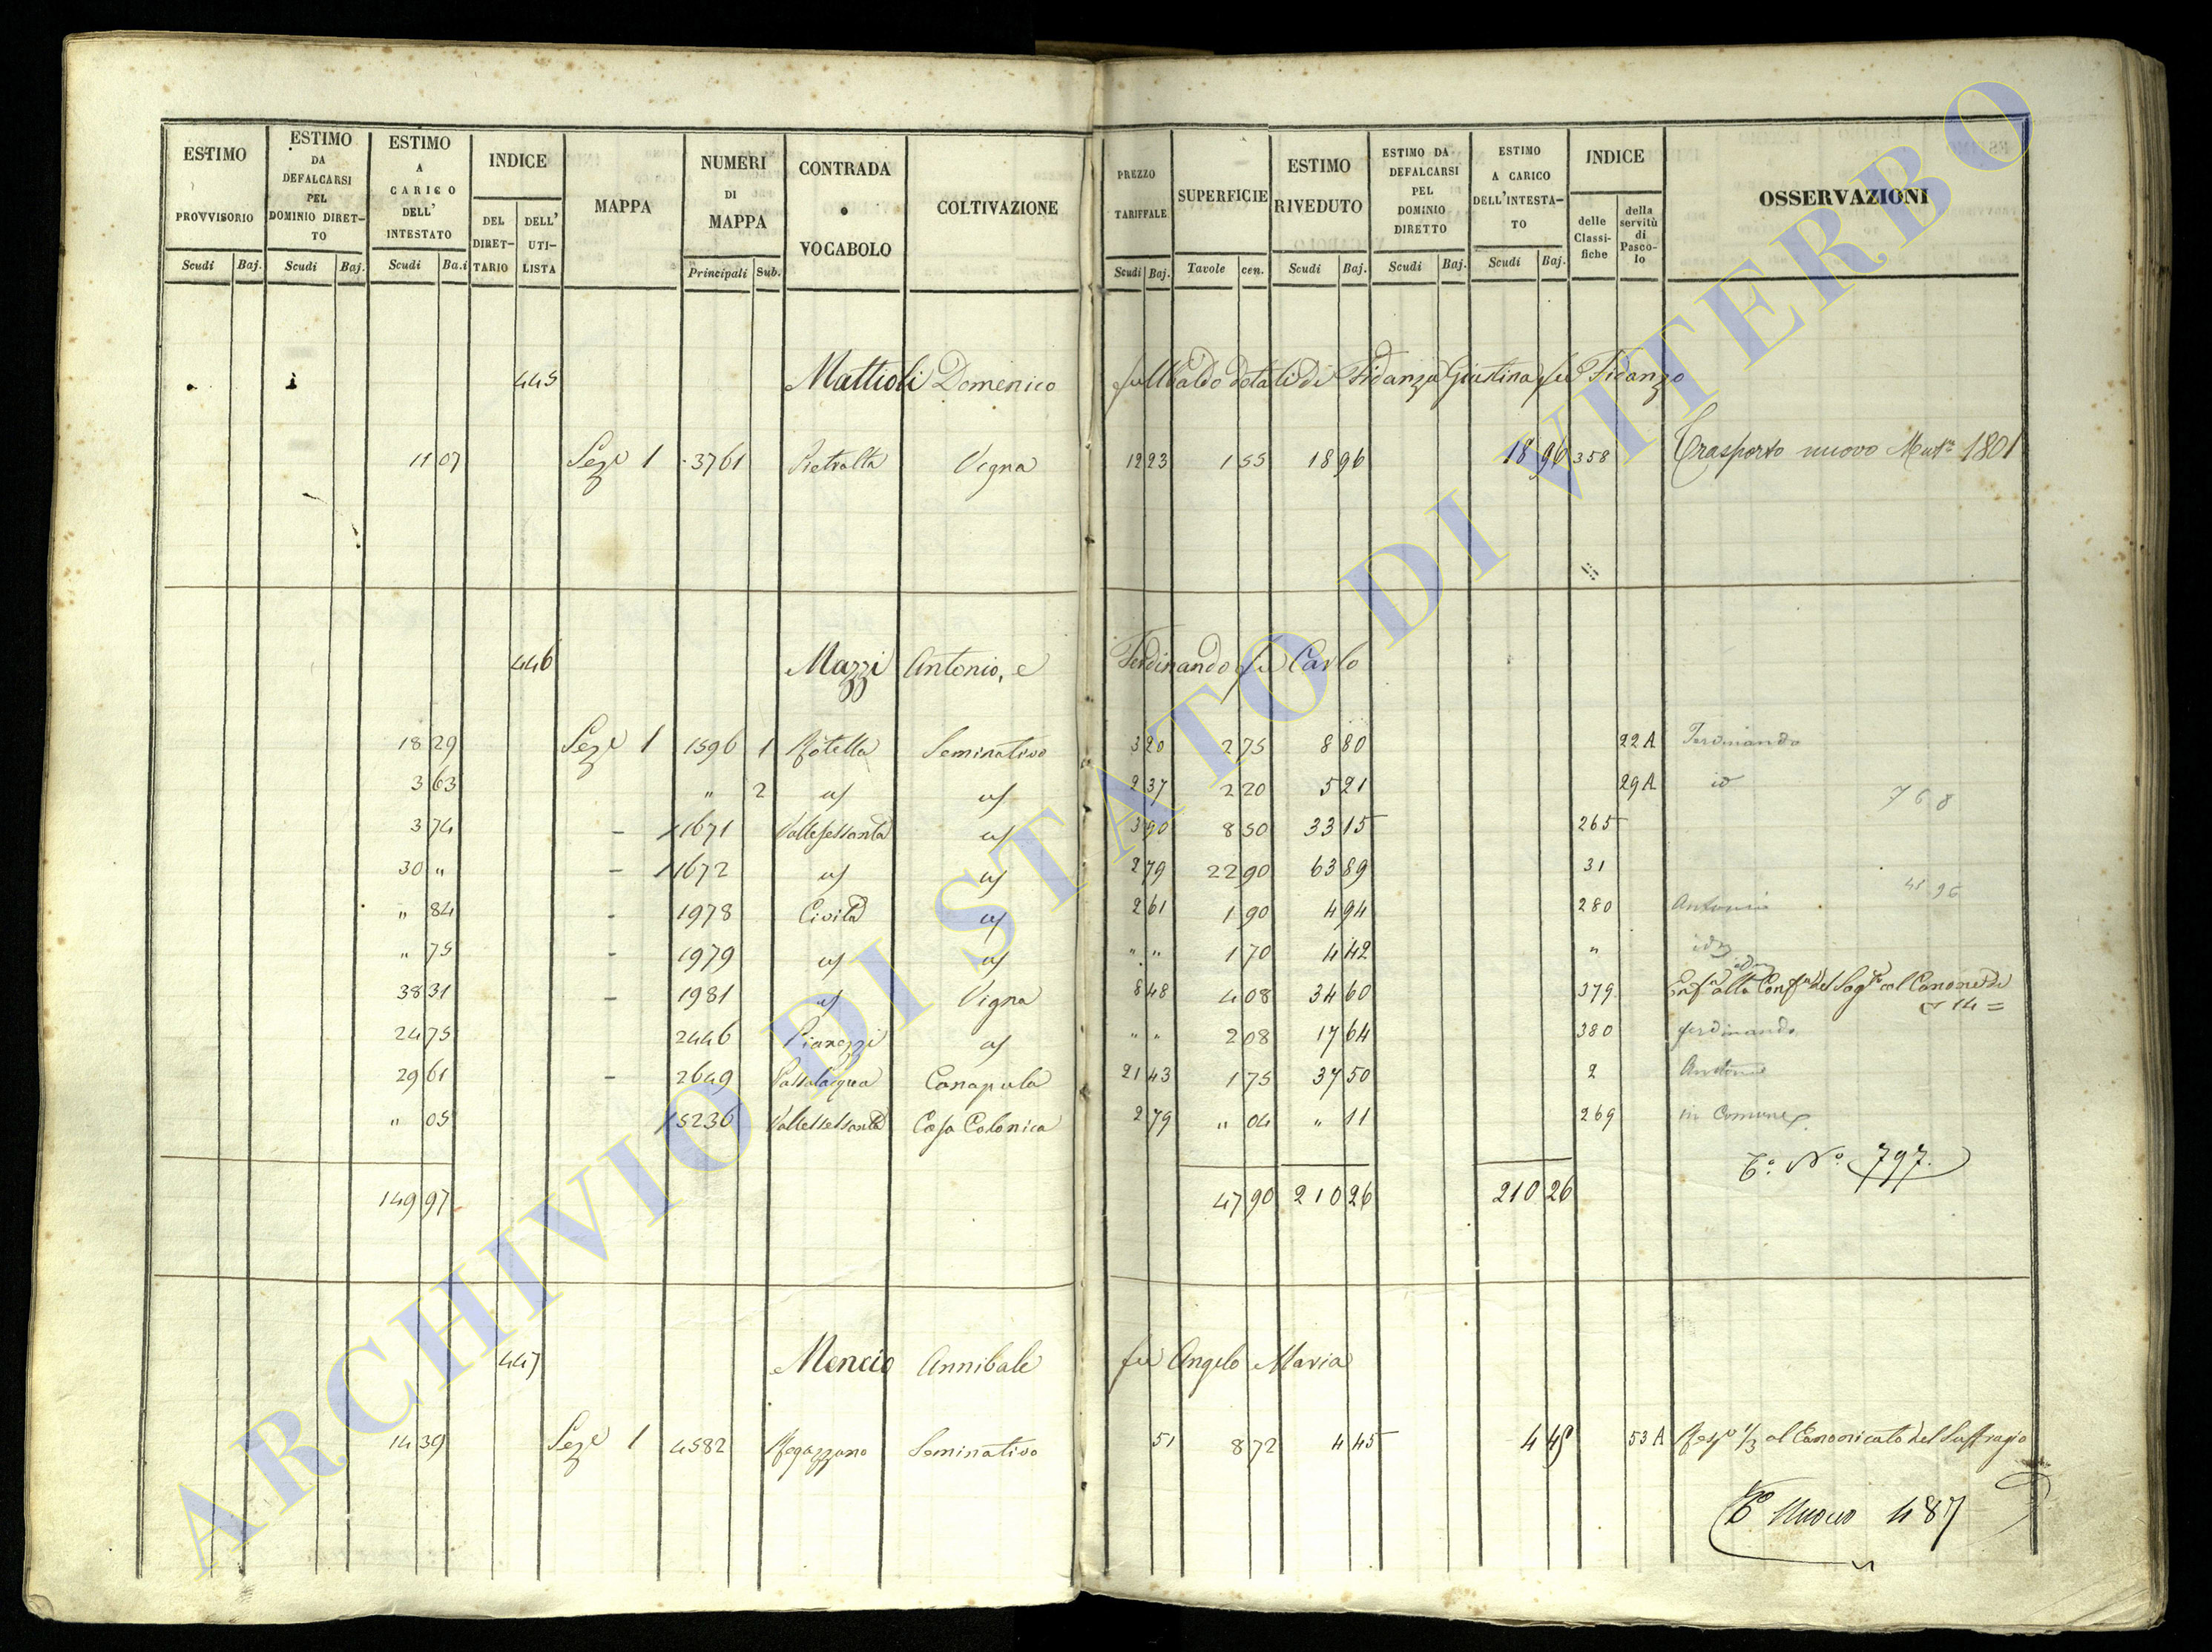 ESTIMO PROVVISORIO Scudi Baj.
ESTIMO DA DEFALCARSI PEL DOMINIO DIRET-TO Scudi Baj.
ESTIMO A CARICO DELL' INTESTATO Scudi Ba.i
INDICE DEL DIRET-TARIO DELL' UTI-LISTA
MAPPA
NUMERI DI MAPPA Principali Sub.
CONTRADA o VOCABOLO
COLTIVAZIONE
PREZZO TARIFFALE Scudi Baj.
SUPERFICIE Tavole cen.
ESTIMO RIVEDUTO Scudi Baj.
ESTIMO DA DEFALCARSI PEL DOMINIO DIRETTO Scudi Baj.
ESTIMO A CARICO DELL'INTESTA-TO Scudi Baj.
INDICE delle Classi-fiche della servitù di Pasco-lo
OSSERVAZIONI
445 Mattioli Domenico fu Ubaldo dotali di Fidanza Giustina fu Fidanzo
11 07 Seze 1 3761 Pietralta Vigna 12 23 1 55 18 96 18 96 358 Trasporto nuovo 1801
446 Mazzi Antonio, e Ferdinando fu Carlo
18 29 Seze 1 1596 1 Rotella Seminativo 3 20 2 75 8 80 22 A Ferdinando
3 63 " 2 " " 2 37 2 20 5 21 29 A id
768
3 74 - 1671 Vallesessanta " 3 90 8 50 33 15 265
30 " - 1672 " " 2 79 22 90 63 89 31
" 84 - 1978 Civita " 2 61 1 90 4 94 280 Antonio
" 75 - 1979 " " " " 1 70 4 42 " id
38 31 - 1981 " Vigna 8 48 4 08 34 60 379 alla del col Canone di
14 =
24 75 2446 Pianezzi " " " 2 08 17 64 380 ferdinando
29 61 - 2649 Passalacqua Canapula 21 43 1 75 37 50 2 Antonio
" 05 5236 Vallesessanta Casa Colonica 2 79 " 04 " 11 269 in Comune
T.o N.o 797.
149 97 47 90 210 26 210 26
447 Mencio Annibale fu Angelo Maria
14 39 Seze 1 4582 Ragazzano Seminativo 51 8 72 4 45 4 45 53 A 1/3 al Canonicato del Suffragio
T.o Nuovo 487
ARCHIVIO DI STATO DI VITERBO